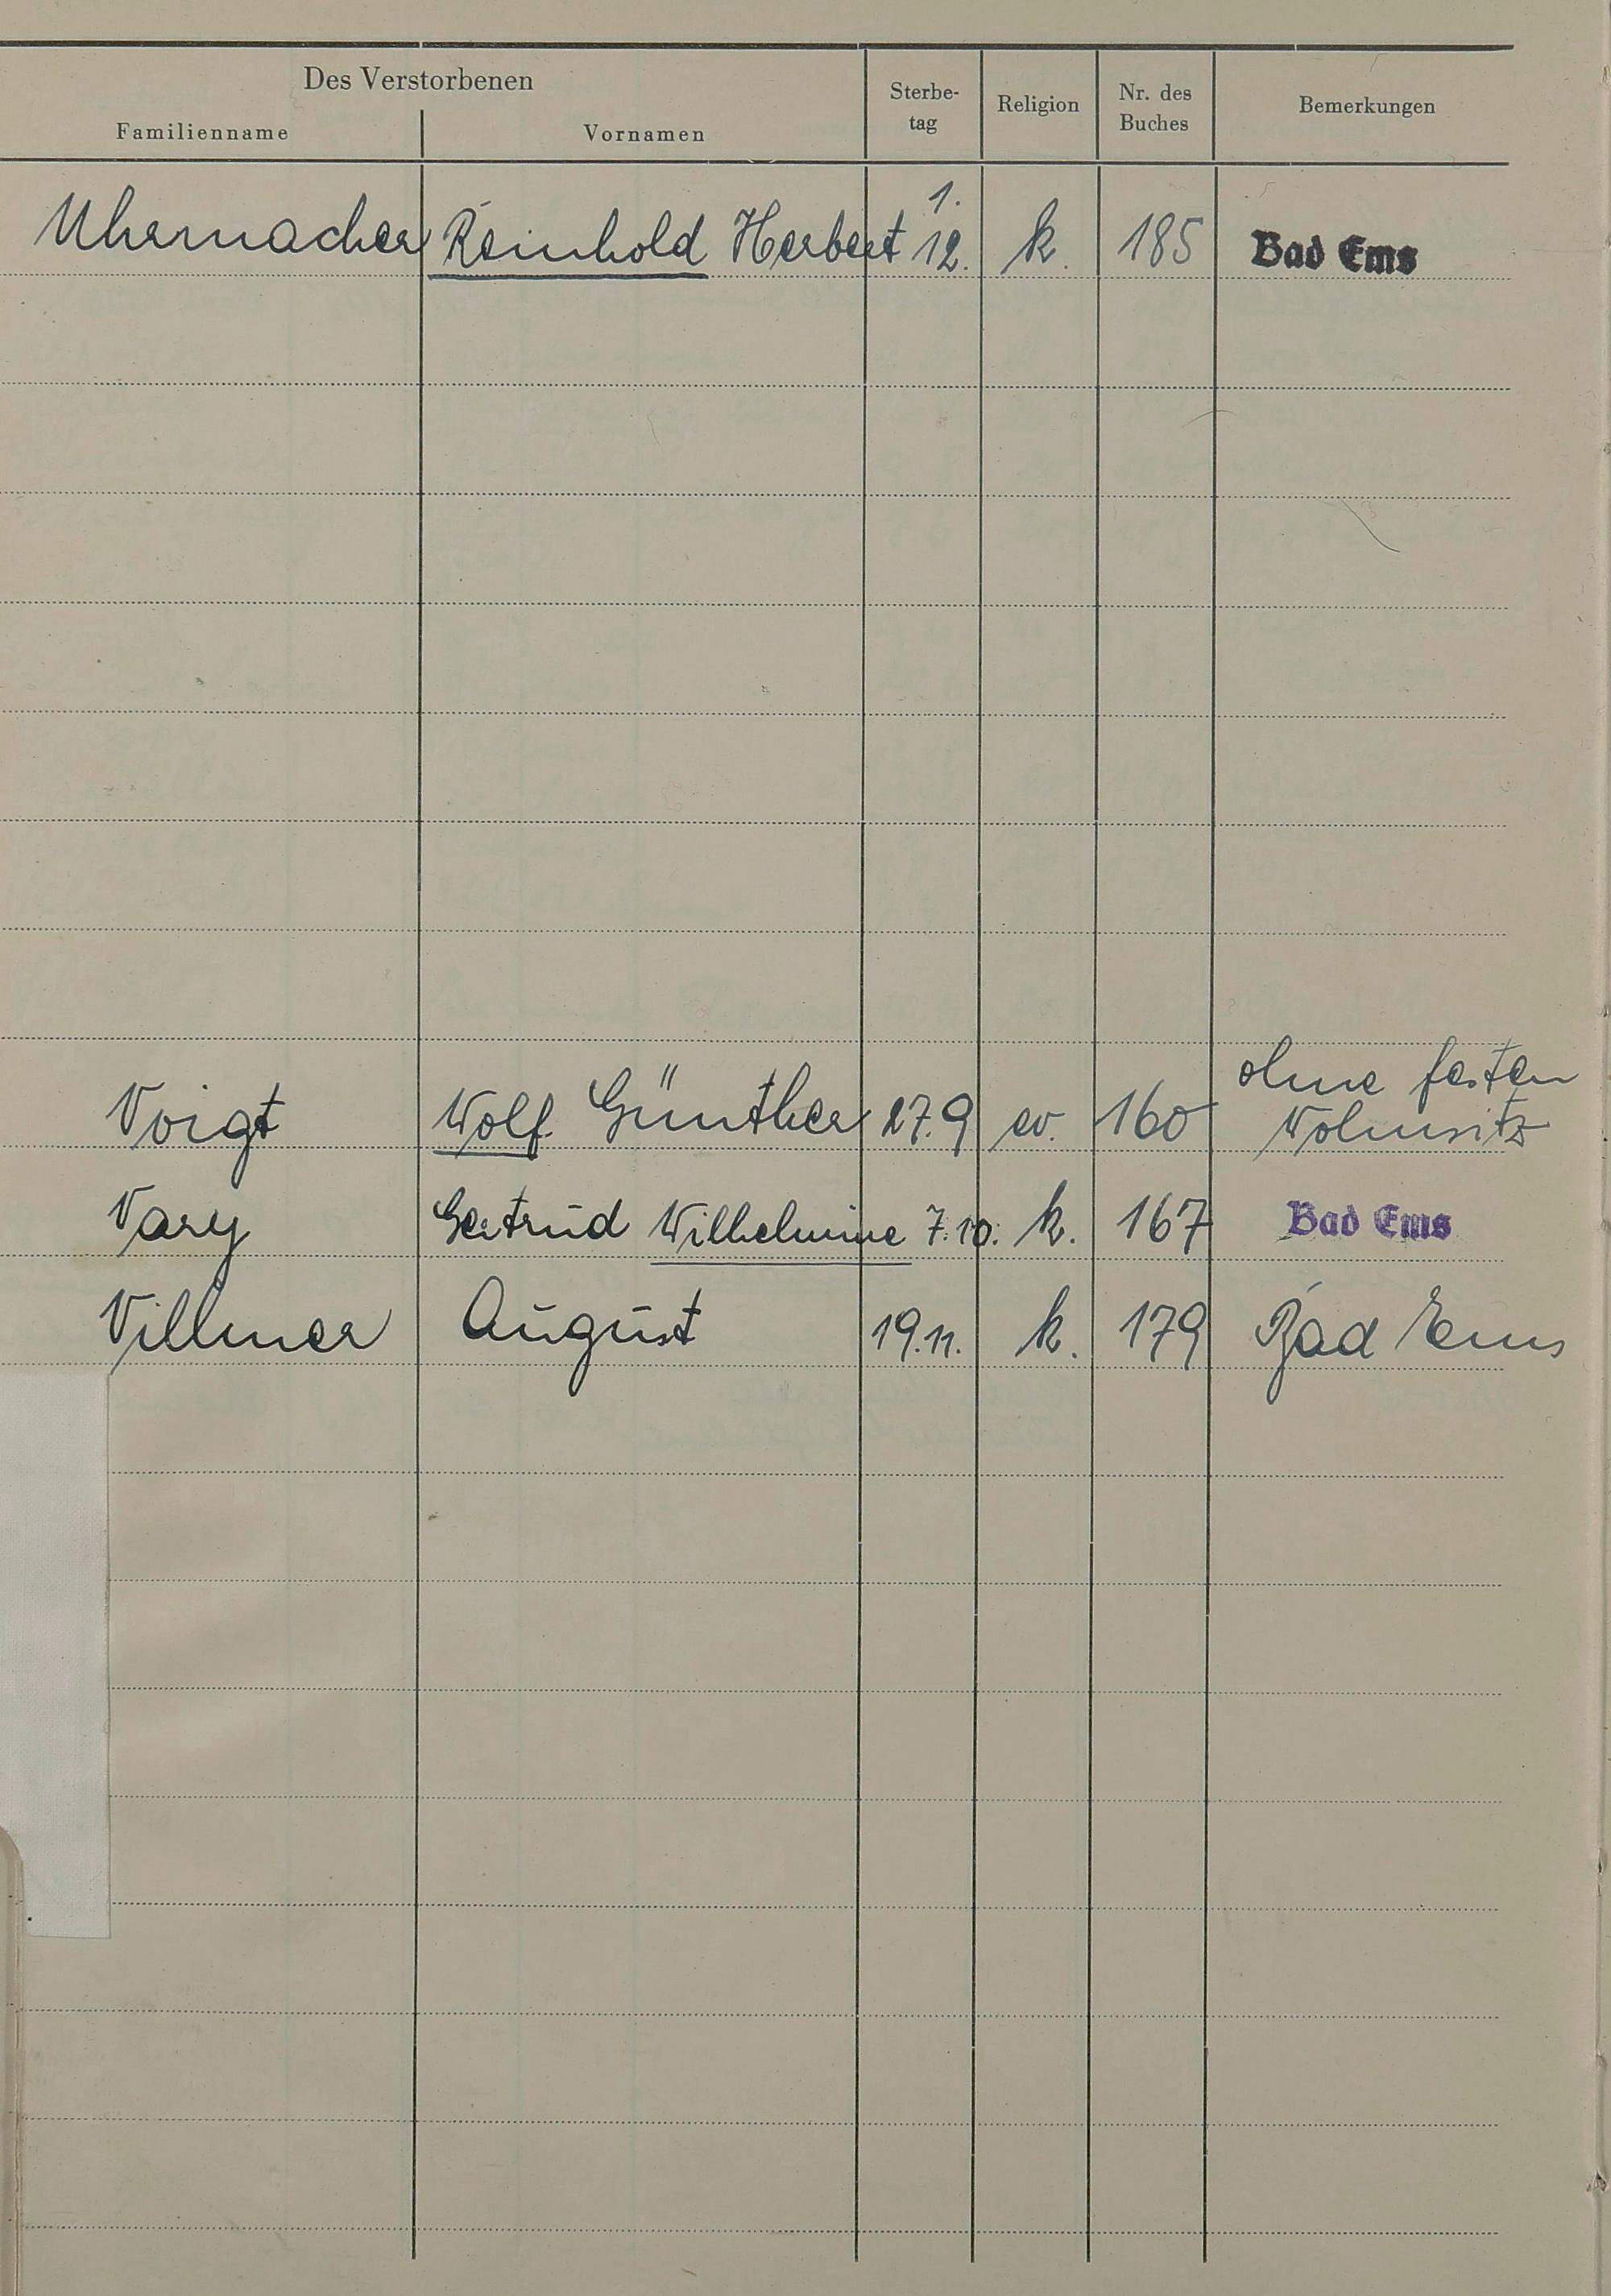 Des Verstorbenen
Familienname Vornamen Sterbe-tag Religion Nr. des Buches Bemerkungen
Uhrmacher Reinhold Herbert 1. 12. k. 185 Bad Ems
ohne festen
Voigt Wolf Günther 27.9 ev. 160 Wohnsitz
Vary Gertrud Wilhelmine 7.10. k. 167 Bad Ems
Villmer August 19.11. k. 179 Bad Ems